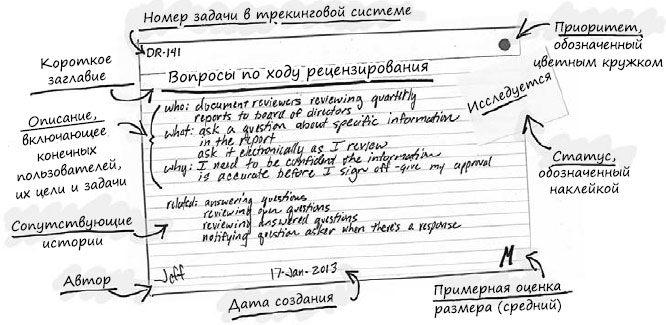 Номер задачи в трекинговой системе
DR-141
Приоритет,
обозначенный
цветным кружком
Короткое
заглавие
Вопросы по ходу рецензирования
Исследуется
Описание,
включающее
конечных
пользователей,
их цели и задачи
who: document reviewers reviewing quarterly
reports to board of directors
what: ask a question about specific information
in the report
ask it electronically as I review
why: I need to be confident the information
is accurate before I sign off - give my approval
Статус,
обозначенный
наклейкой
Сопутствующие
истории
related: answering questions
reviewing own questions
reviewing answered questions
notifying question asker when there's a response
Автор
Jeff
17-Jan-2013
M
Дата создания
Примерная оценка
размера (средний)